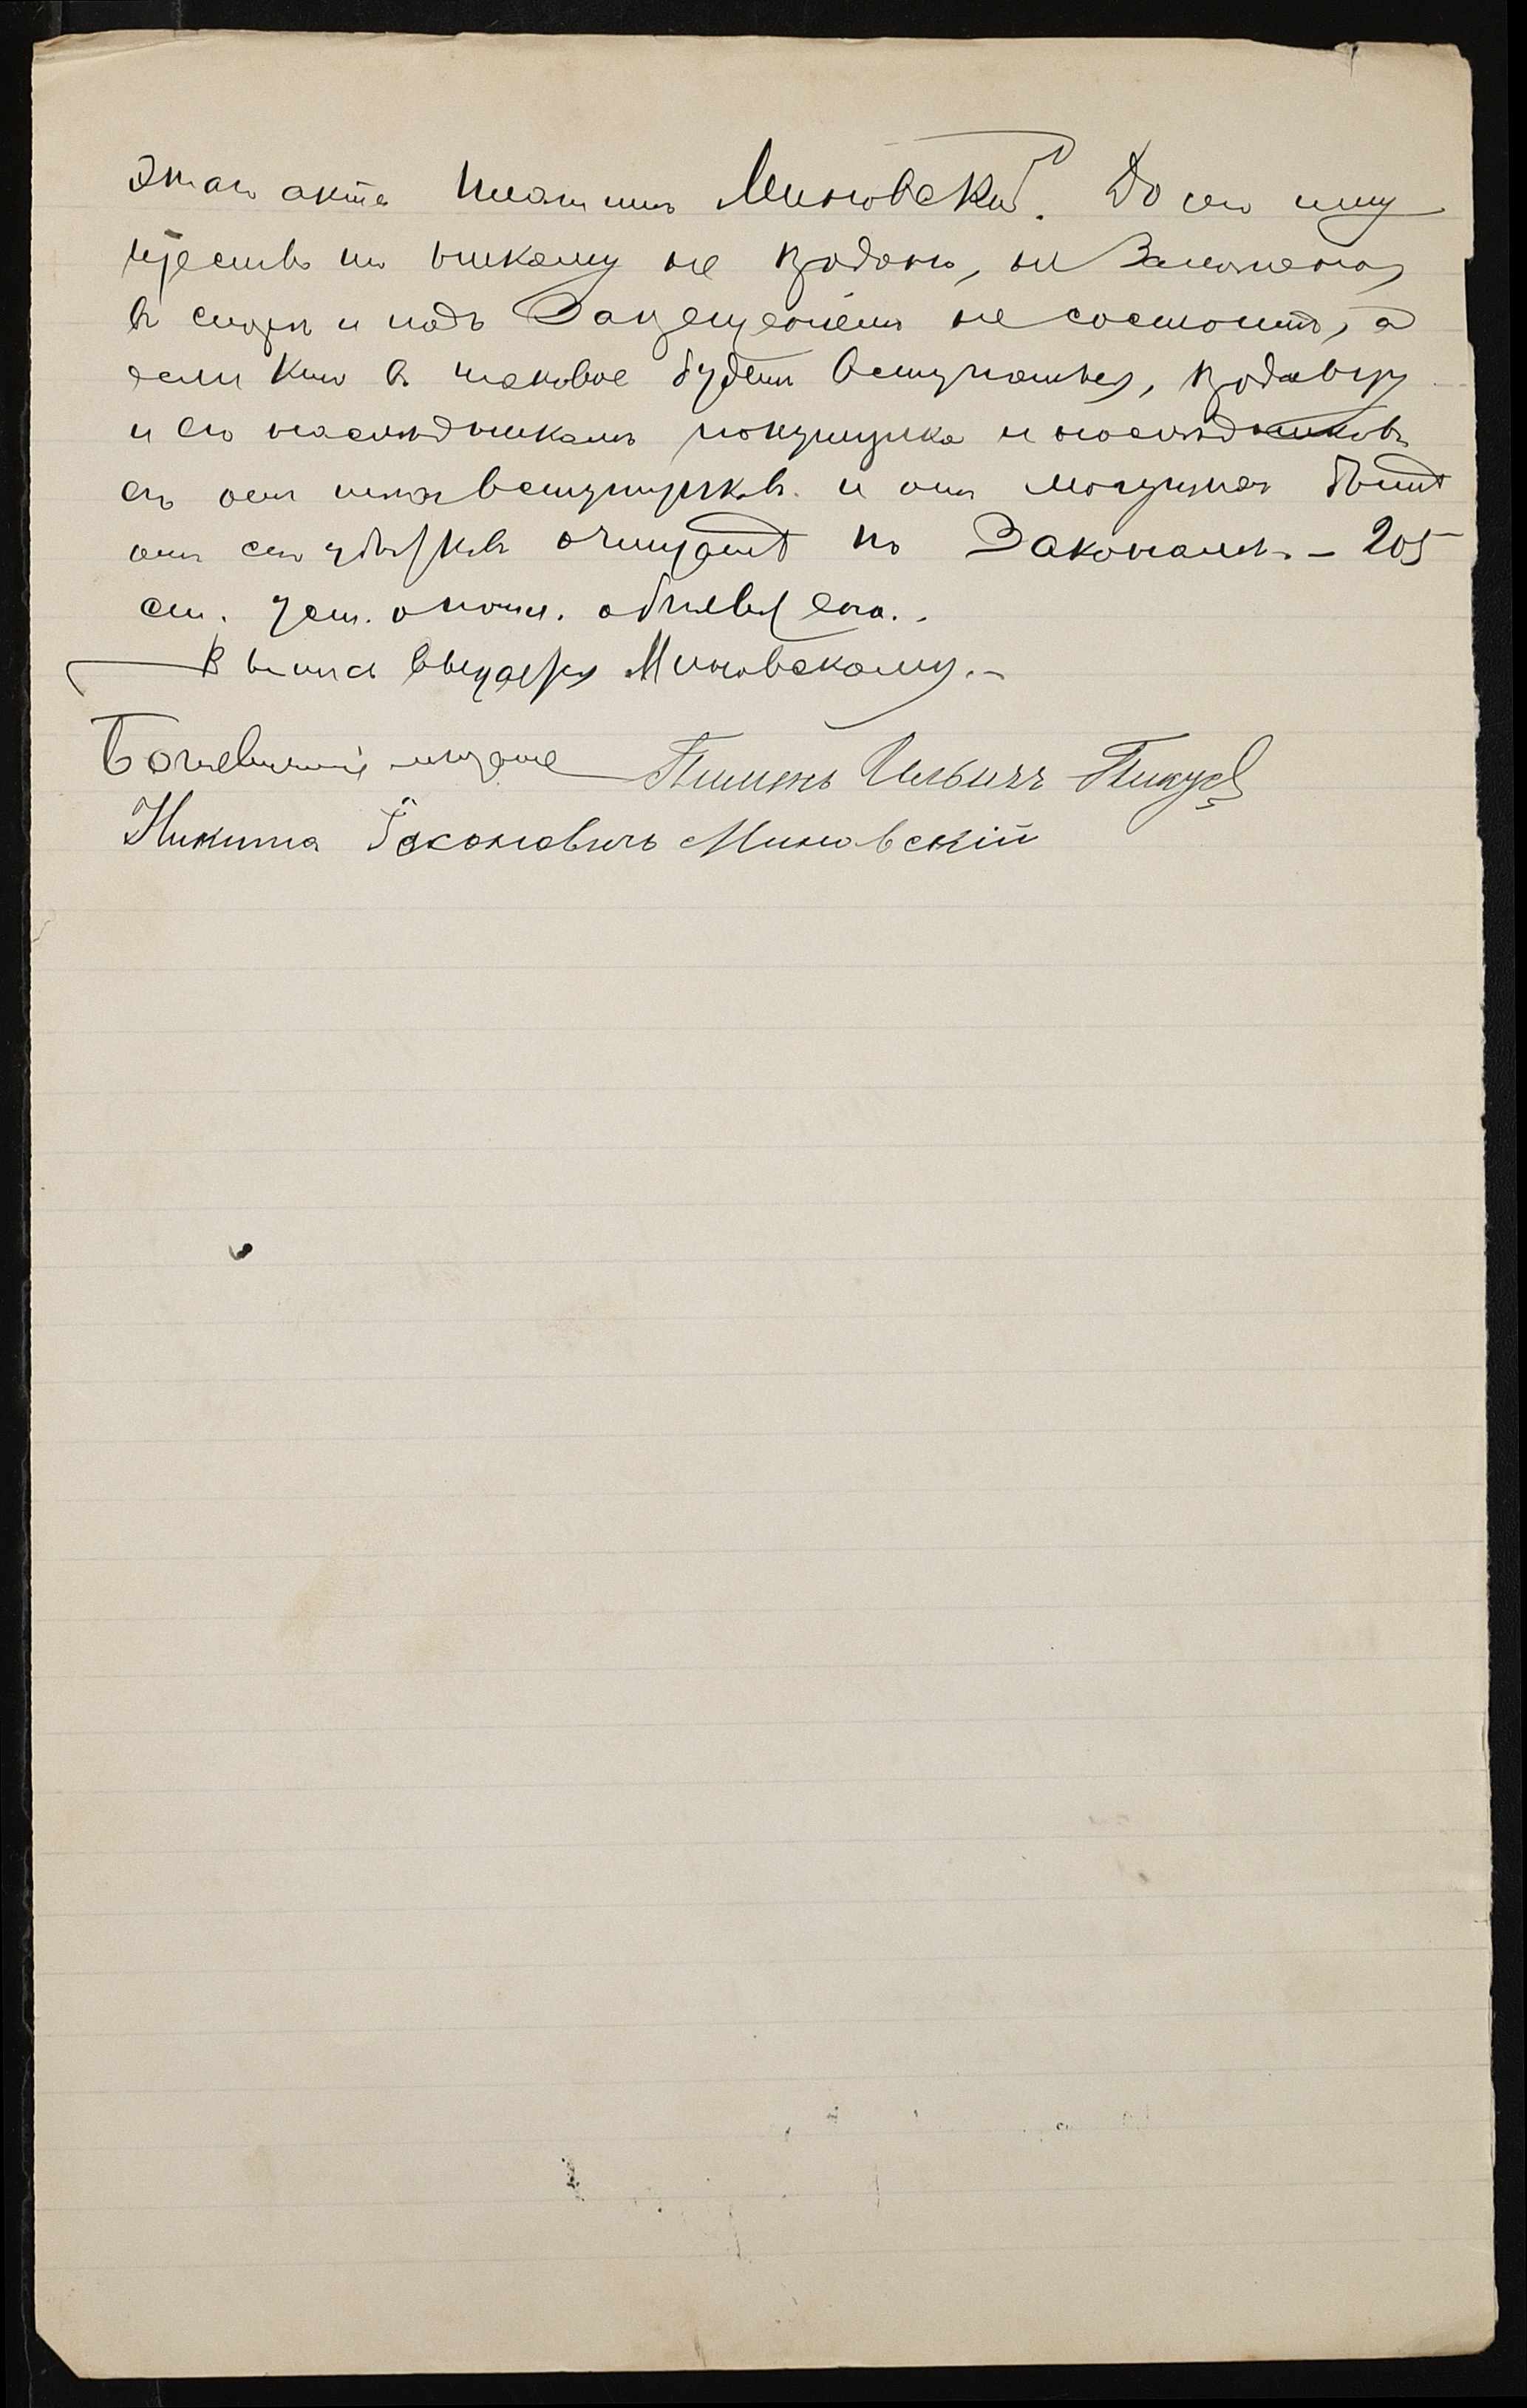 этого акта платитъ Миновскій. До сего иму
щество никому не продано, не заложено,
въ споре и подъ запрещеніемъ не состоитъ, а
если кто въ таковое будетъ вступаться, продавцу
и его наследникамъ покупщика и наследниковъ
его отъ техъ вступщиковъ и отъ могущихъ быть
отъ сего убытковъ очищать по законамъ. – 205
ст. уст. о пошл. объявлена.
Выпись выдается Миновскому. –
мещане Пименъ Ильичъ
Никита Миновскій